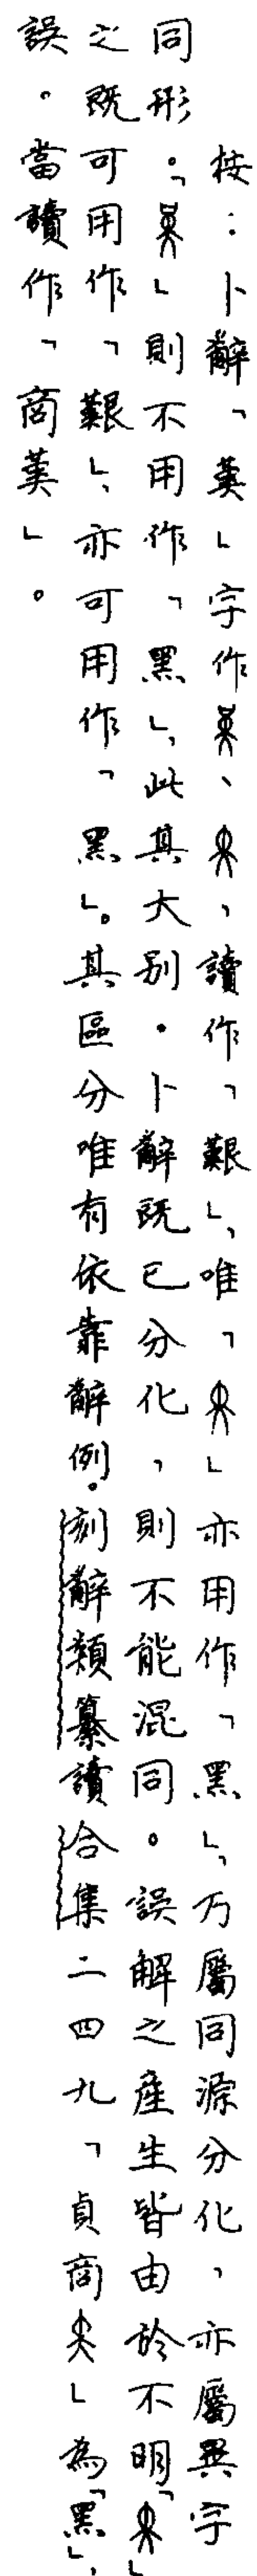 按：卜辭「堇」字作、，讀作「艱」，唯「」亦用作「黑」，乃屬同源分化，亦屬異字
同形。「」則不用作「黑」，此其大別。卜辭既已分化，則不能混同。誤解之產生皆由於不明「」
之既可用作「艱」，亦可用作「黑」。其區分唯有依靠辭例。刻辭類纂讀合集二四九「貞商」為「黑」，
誤。當讀作「商堇」。